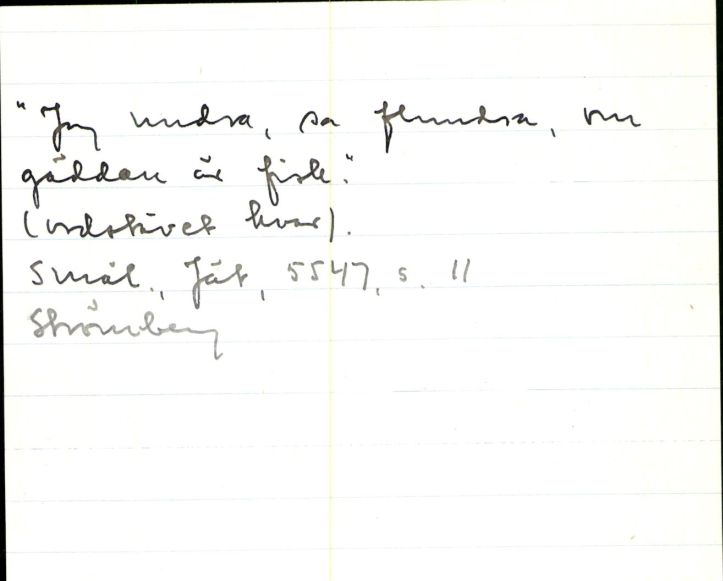 "Jag undra, sa flundra, om
gäddan är fisk."
(ordstävet kvar).
Smål., Jät, 5547, s. 11
Strömberg